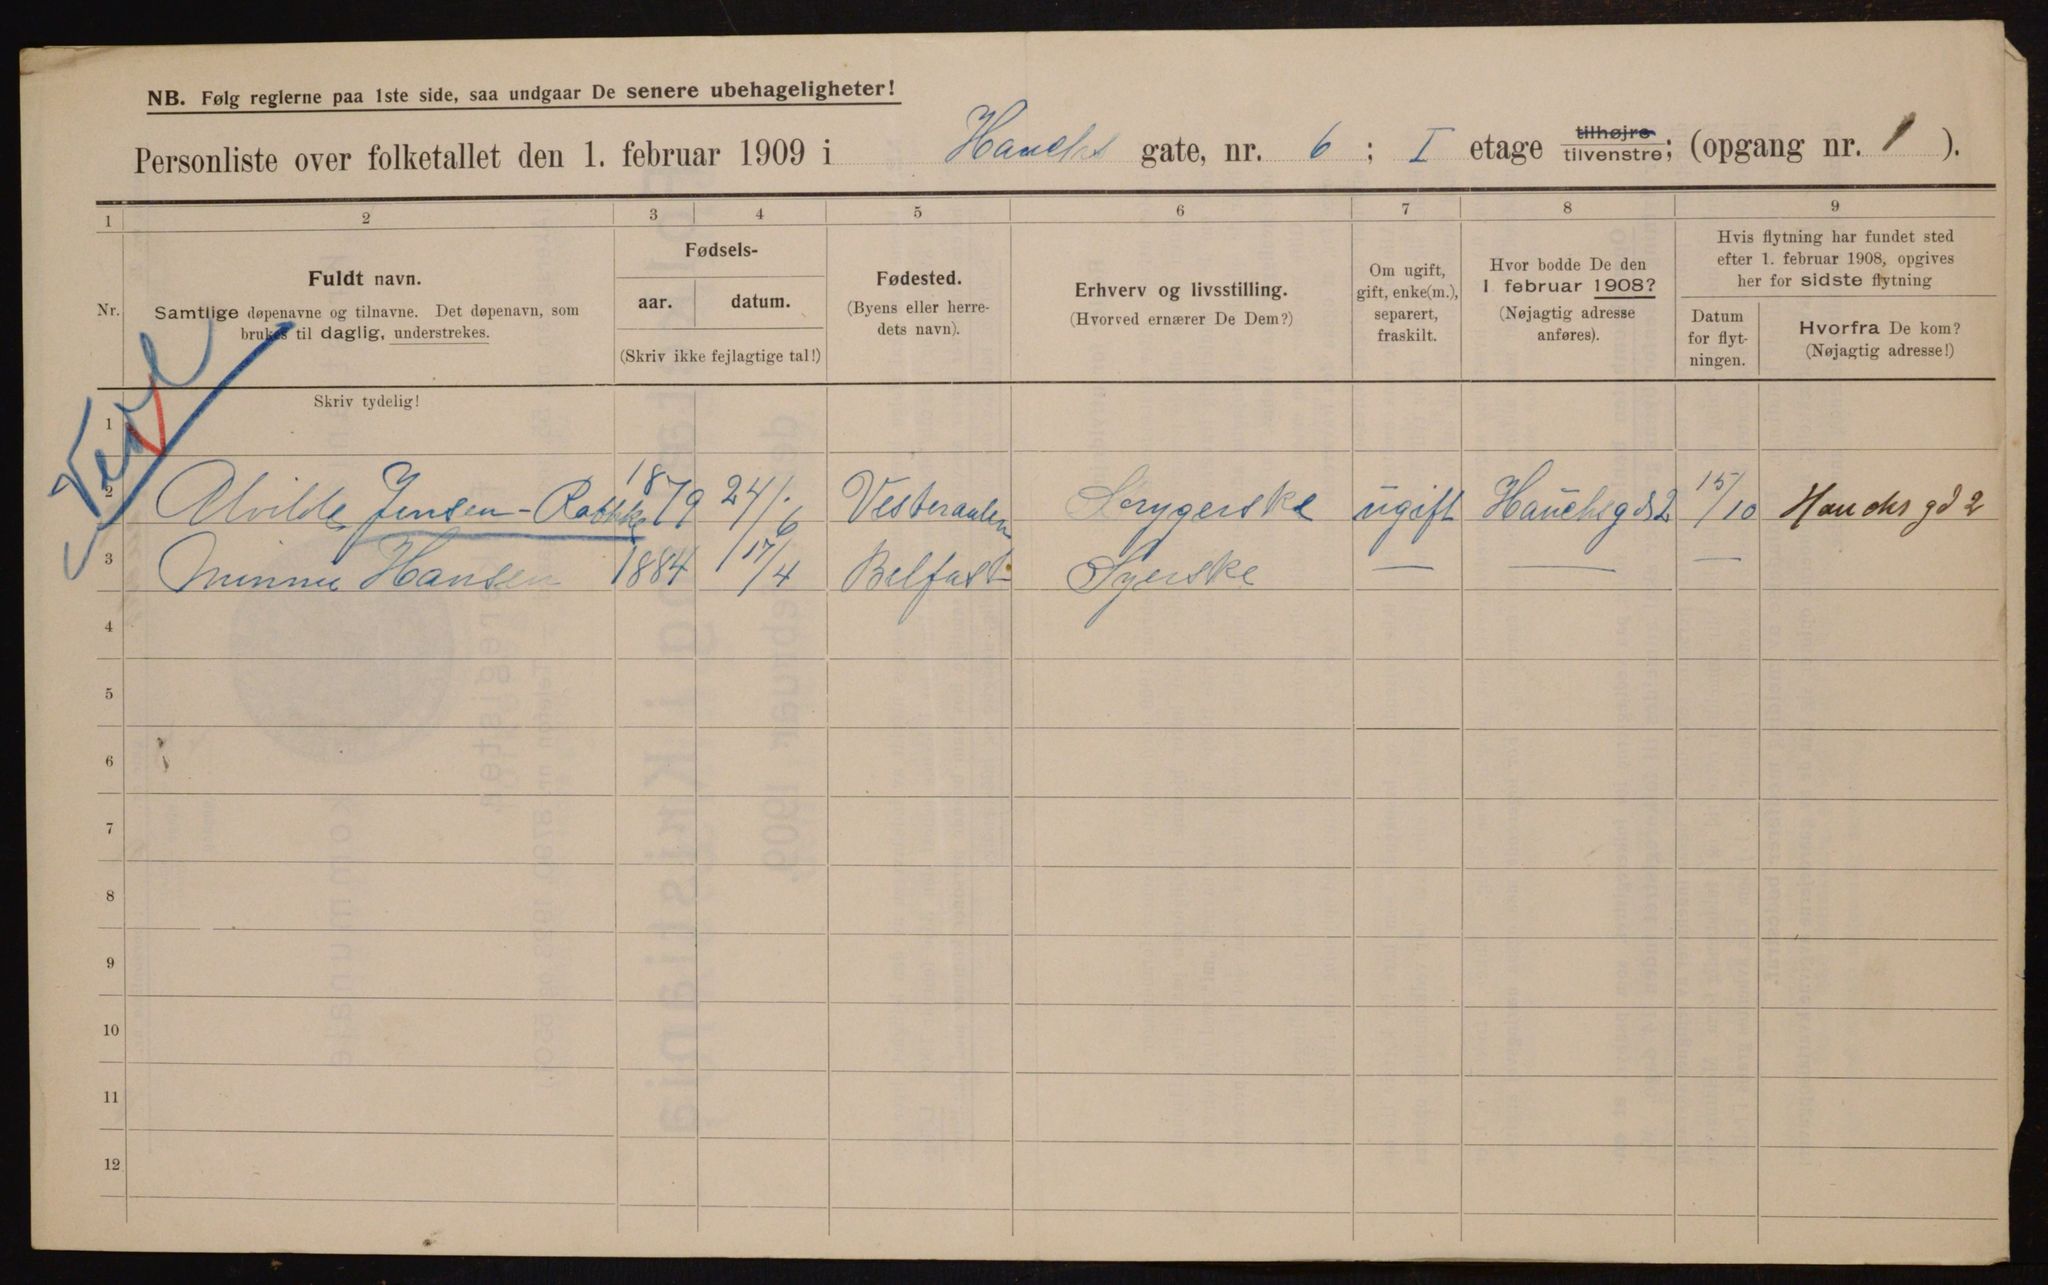 NB. Følg reglerne paa 1ste side, saa undgaar De senere ubehageligheter!
Personliste over folketallet den 1. februar 1909 i Hauchs gate, nr. 6; I etage tilhøjre tilvenstre; (opgang nr. 1).
1 2 3 4 5 6 7 8 9
Nr.
Fuldt navn.
Samtlige døpenavne og tilnavne. Det døpenavn, som
brukes til daglig, understrekes.
Fødsels-
aar. datum.
(Skriv ikke fejlagtige tal!)
Fødested.
(Byens eller herre-
dets navn).
Erhverv og livsstilling.
(Hvorved ernærer De Dem?)
Om ugift,
gift, enke(m.),
separert,
fraskilt.
Hvor bodde De den
1. februar 1908?
(Nøjagtig adresse
anføres).
Hvis flytning har fundet sted
efter 1. februar 1908, opgives
her for sidste flytning
Datum
for flyt-
ningen.
Hvorfra De kom?
(Nøjagtig adresse!)
Skriv tydelig!
1
2 Alvilde Jensen-Rabkke 1879 24/6 Vesteraalen Strygerske ugift Hauchsgd 2 15/10 Hauchs gd 2
3 Minnie Hansen 1884 17/4 Belfast Syerske — — —
4
5
6
7
8
9
10
11
12